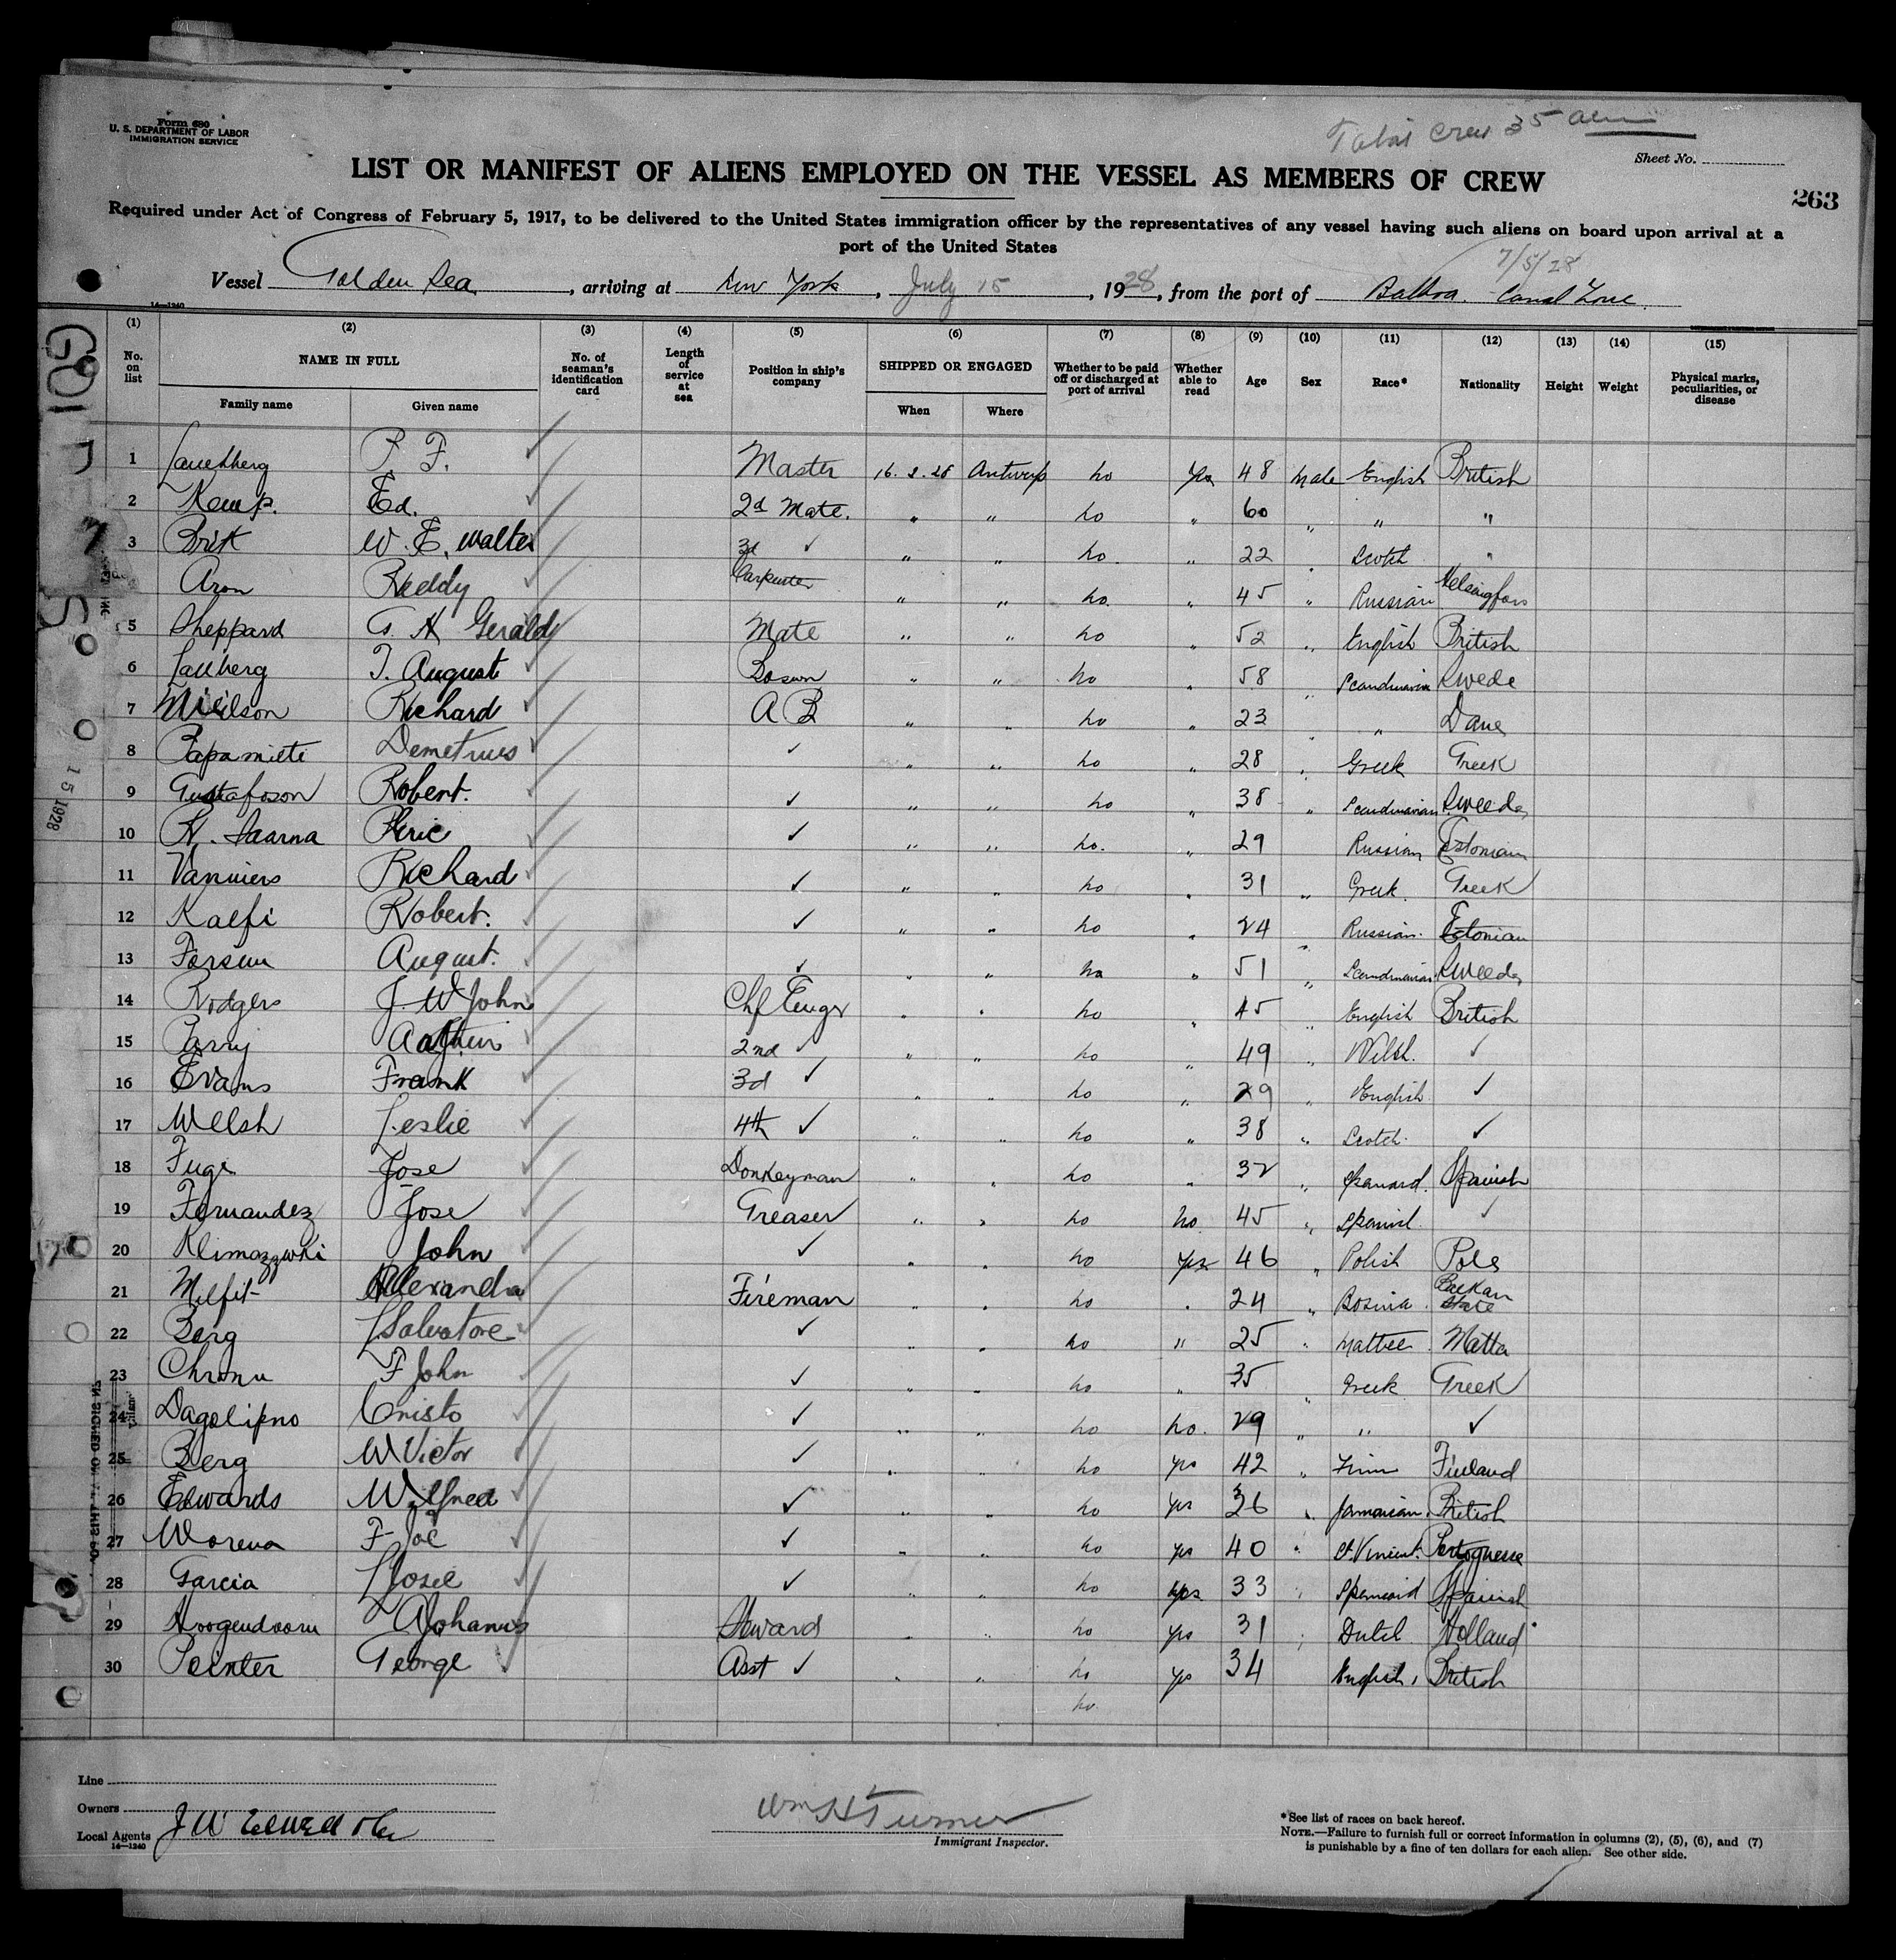 Form 680
U. S. DEPARTMENT OF LABOR
IMMIGRATION SERVICE
Total Crew 35
Sheet No.
LIST OR MANIFEST OF ALIENS EMPLOYED ON THE VESSEL AS MEMBERS OF CREW
263
Required under Act of Congress of February 5, 1917, to be delivered to the United States immigration officer by the representatives of any vessel having such aliens on board upon arrival at a
port of the United States
7/5/28
Vessel Golden Sea, arriving at New York, July 15, 1928, from the port of Balboa. Canal Zone.
14—1240
(1) (2) (3) (4) (5) (6) (7) (8) (9) (10) (11) (12) (13) (14) (15)
No. on list NAME IN FULL No. of seaman's identification card Length of service at sea Position in ship's company SHIPPED OR ENGAGED Whether to be paid off or discharged at port of arrival Whether able to read Age Sex Race* Nationality Height Weight Physical marks, peculiarities, or disease
Family name Given name When Where
1 P. F. Master Antwerp no yes 48 male English British
2 Kemp. Ed. 2d Mate. " " no " 60 " " "
3 Brik W. E. Walter 3d ✓ " " no. " 22 " Scotch "
Aron Reddy Carpenter " " no. " 45 " Russian Helsingfors
5 Sheppard G. H Gerald Mate " " no " 52 " English British
6 T. August Bosun " " no " 58 " Scandinavian Swede
7 Richard A B " " no " 23 " " Dane
8 Papamiete Demetrius ✓ " " no " 28 " Greek Greek
9 Gustafsson Robert. ✓ " " no " 38 " Scandinavian Sweede
10 K. Saarna ✓ " " no. " 29 Russian Estonian
11 Richard ✓ " " no " 31 " Greek. Greek
12 Kalfi Robert. ✓ " " no " 24 Russian. Estonian
13 August. ✓ " " no " 51 " Scandinavian Sweede
14 Rodgers J. W John Chf Engr " " no " 45 " English British
15 Parry 2nd ✓ " " no " 49 " Welsh. ✓
16 Evans Frank 3d ✓ " " no " 29 " English ✓
17 Welsh Leslie 4th ✓ " " no " 38 " Scotch. ✓
18 Fuge Jose Donkeyman " " no " 32 " Spaniard. Spanish
19 Fernandez Jose Greaser " " no no 45 " Spanish ✓
20 John ✓ " " no yes 46 " Polish Pole
21 Melfit Alexandra Fireman " " no " 24 " Bosina Balkan State
22 Borg Salvatore ✓ " " no " 25 " Maltese Malta
23 F John ✓ " " no " 35 " Greek Greek
24 Dagolipno Cristo ✓ " " no no. 29 " " ✓
25 Berg W Victor ✓ " " no yes 42 " Finn Finland
26 Edwards Wilfred ✓ " " no yes " Jamaican British
27 Morena F Joe ✓ " " no yes 40 " St. Vincent. Portoguese
28 Garcia Josee ✓ " " no yes 33 " Spaniard Spanish
29 Hoogendoorn A Johannis Steward " " no yes 31 " Dutch Holland
30 Pointer George Asst ✓ " " no yes 34 English, British
no.
Line
Owners
Local Agents J W Elwell & Co
14—1240
Wm H Turner
Immigrant Inspector.
*See list of races on back hereof.
NOTE.—Failure to furnish full or correct information in columns (2), (5), (6), and (7)
is punishable by a fine of ten dollars for each alien. See other side.
15 1928